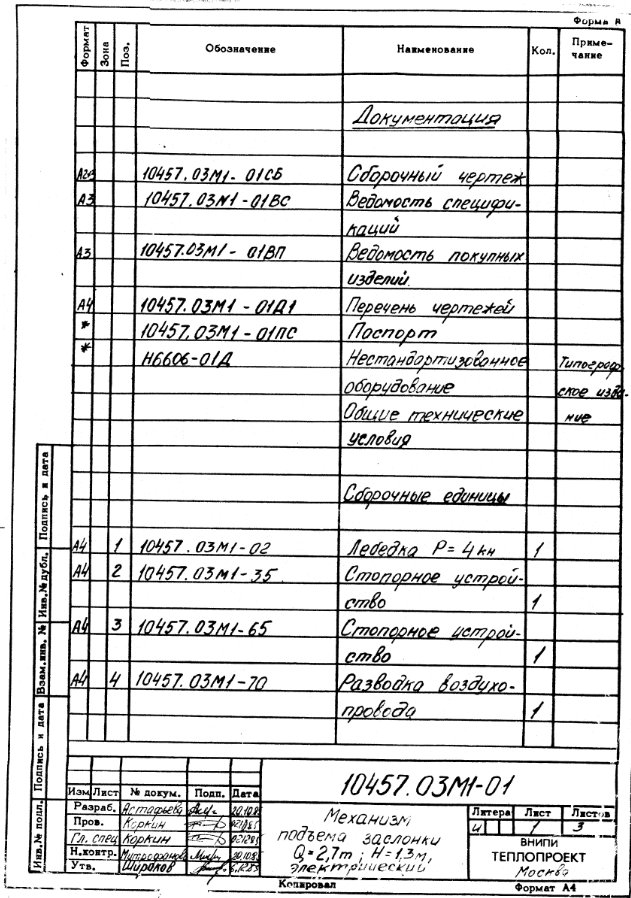 Форма 8
Формат Зона Поз. Обозначение Наименование Кол. Приме-
чание
Документация
10457.03М1-01СБ Сборочный чертеж
А3 10457.03М1-01ВС Ведомость специфи-
каций
А3 10457.03М1-01ВП Ведомость покупных
изделий
А4 10457.03М1-01Д1 Перечень чертежей
* 10457.03М1-01ПС Паспорт
* Н6606-01Д Нестандартизованное Типограф-
оборудование ское изда-
Общие технические ние
условия
Сборочные единицы
А4 1 10457.03М1-02 Лебедка Р=4кн 1
А4 2 10457.03М1-35 Стопорное устрой-
ство 1
А4 3 10457.03М1-65 Стопорное устрой-
ство 1
А4 4 10457.03М1-70 Разводка воздухо-
провода 1
Подпись и дата
Инв.№ дубл.
Взам.инв. №
Подпись и дата
Инв.№ подл.
10457.03М1-01
Изм Лист № докум. Подп. Дата
Разраб. Астафьева
Пров. Коркин
Гл. спец Коркин
Н.контр. Митрофанова
Утв. Широков
Механизм
подъема заслонки
Q=2,7т; Н=1,3м,
электрический
Литера Лист Листов
И 1 3
ВНИПИ
ТЕПЛОПРОЕКТ
Москва
Копировал Формат А4